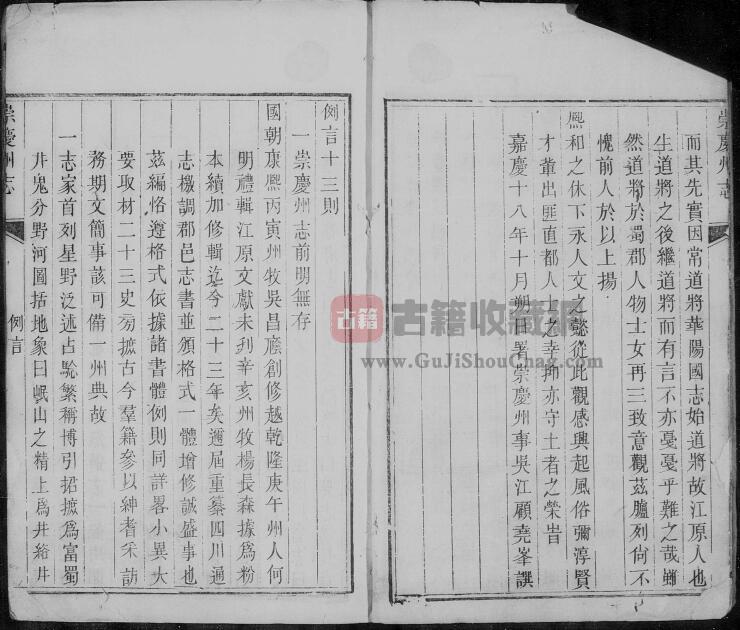 崇慶州志
而其先實因常道將華陽國志始道將故江原人也
生道將之後繼道將而有言不亦憂憂乎難之哉鄉
然道將於蜀郡人物士女再三致意觀茲臚列尙不
愧前人於以上揚
熈和之休下永人文之懿從此觀感興起風俗彌淳賢
才輩出匪直都人士之幸抑亦守土者之榮旹
嘉慶十八年十月朔日署崇慶州事吳江顧堯峯譔
例言十三則
一崇慶州志前明無存
國朝康熈丙寅州牧吳昌廕創修越乾隆庚午州人何
明禮輯江原文獻未刋辛亥州牧楊長森據爲粉
本續加修輯迄今二十三年矣邇屆重纂四川通
志檄調郡邑志書並頒格式一體增修誠盛事也
茲編恪遵格式依據諸書體例則同詳畧小異大
要取材二十三史旁摭古今羣籍參以紳耆采訪
務期文簡事該可備一州典故
一志家首列星野泛述占驗繁稱博引招摭爲富蜀
井鬼分野河圖括地象曰岷山之精上爲井絡井
崇慶州志
例言
古籍
古籍收藏網
www.GuJiShouChag.com